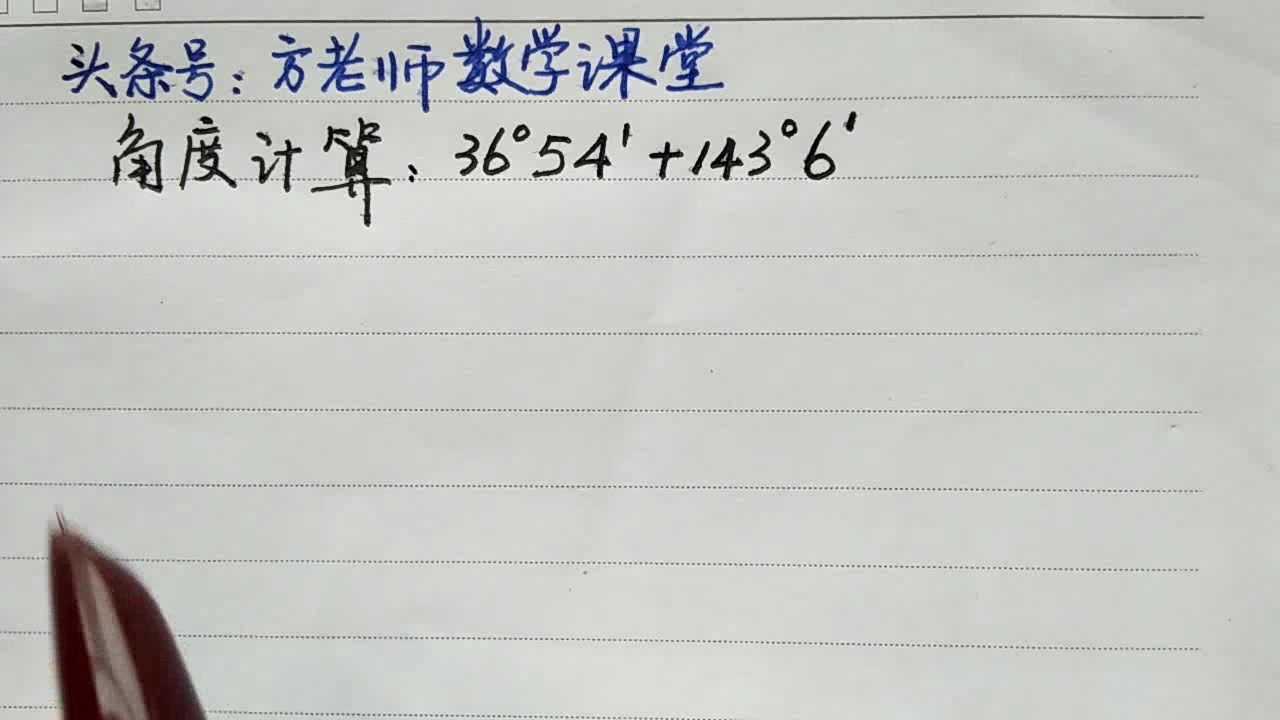 头条号：方老师数学课堂
角度计算：36°54′+143°6′